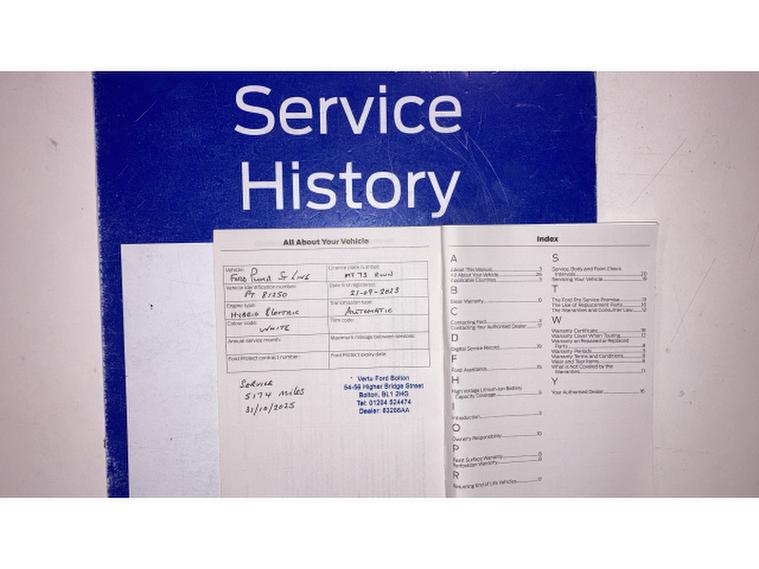 Service
History
All About Your Vehicle
Vehicle:
Ford Puma ST Line
Licence plate number:
MT 73 RWN
Vehicle identification number:
PT 81250
Date first registered:
21-09-2023
Engine type:
Hybrid Electric
Transmission type:
Automatic
Colour code:
White
Trim code:
Annual service month:
Maximum mileage between services:
Ford Protect contract number:
Ford Protect expiry date:
Service
5174 miles
31/10/2025
Vertu Ford Bolton
54-56 Higher Bridge Street
Bolton, BL1 2HG
Tel: 01204 524474
Dealer: 63266AA
Index
A
About This Manual 3
All About Your Vehicle
Applicable Countries 3
B
Basic Warranty
C
Contacting Ford
Contacting Your Authorised Dealer 17
D
Digital Service Record 19
F
Ford Assistance
H
High Voltage Lithium-Ion Battery
Capacity Coverage
I
Introduction 3
O
Owner's Responsibility 10
P
Paint Surface Warranty
Perforation Warranty
R
Returning End of Life Vehicles
S
Service, Body and Paint Check
Intervals 20
Servicing Your Vehicle
T
The Ford Pre Service Promise
The Use of Replacement Parts
The Warranties and Consumer Law 12
W
Warranty Certificate
Warranty Cover When Touring
Warranty on Repaired or Replaced
Parts
Warranty Periods
Warranty Terms and Conditions
Wear and Tear Items
What is not Covered by the
Warranties 11
Y
Your Authorised Dealer 16